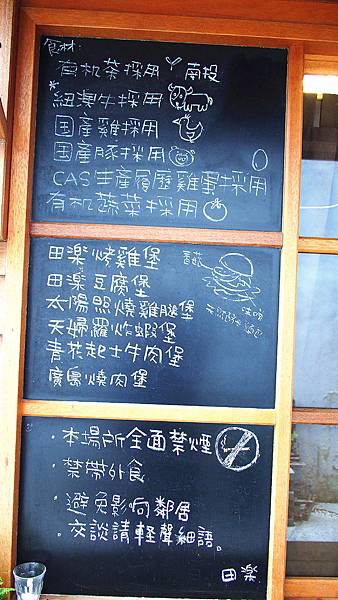 食材:
有机茶採用 南投
*紐澳牛採用
国產雞採用
国產豚採用
CAS生產履歷雞蛋採用
有机蔬菜採用
田楽烤雞堡
田楽豆腐堡
太陽照燒雞腿堡
天婦羅炸蝦堡
青花起士牛肉堡
廣島燒肉堡
・本場所全面禁煙
・禁帶外食
・避免影响鄰居
・交談請輕聲細語。
田楽